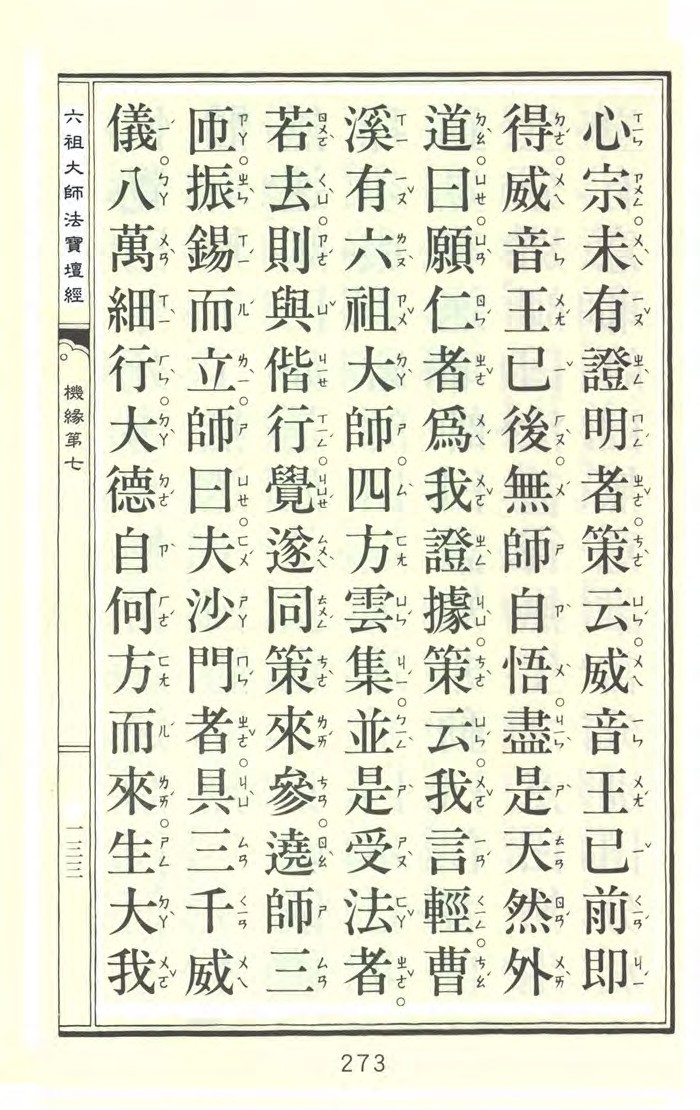 心宗。未有證明者。策云。威音王已前即
得。威音王已後。無師自悟。盡是天然外
道。曰。願仁者爲我證據。策云。我言輕。曹
溪有六祖大師。四方雲集。並是受法者。
若去。則與偕行。覺遂同策來參。遶師三
匝。振錫而立。師曰。夫沙門者。具三千威
儀。八萬細行。大德自何方而來。生大我
六祖大師法寶壇經
機緣第七
一三三
273